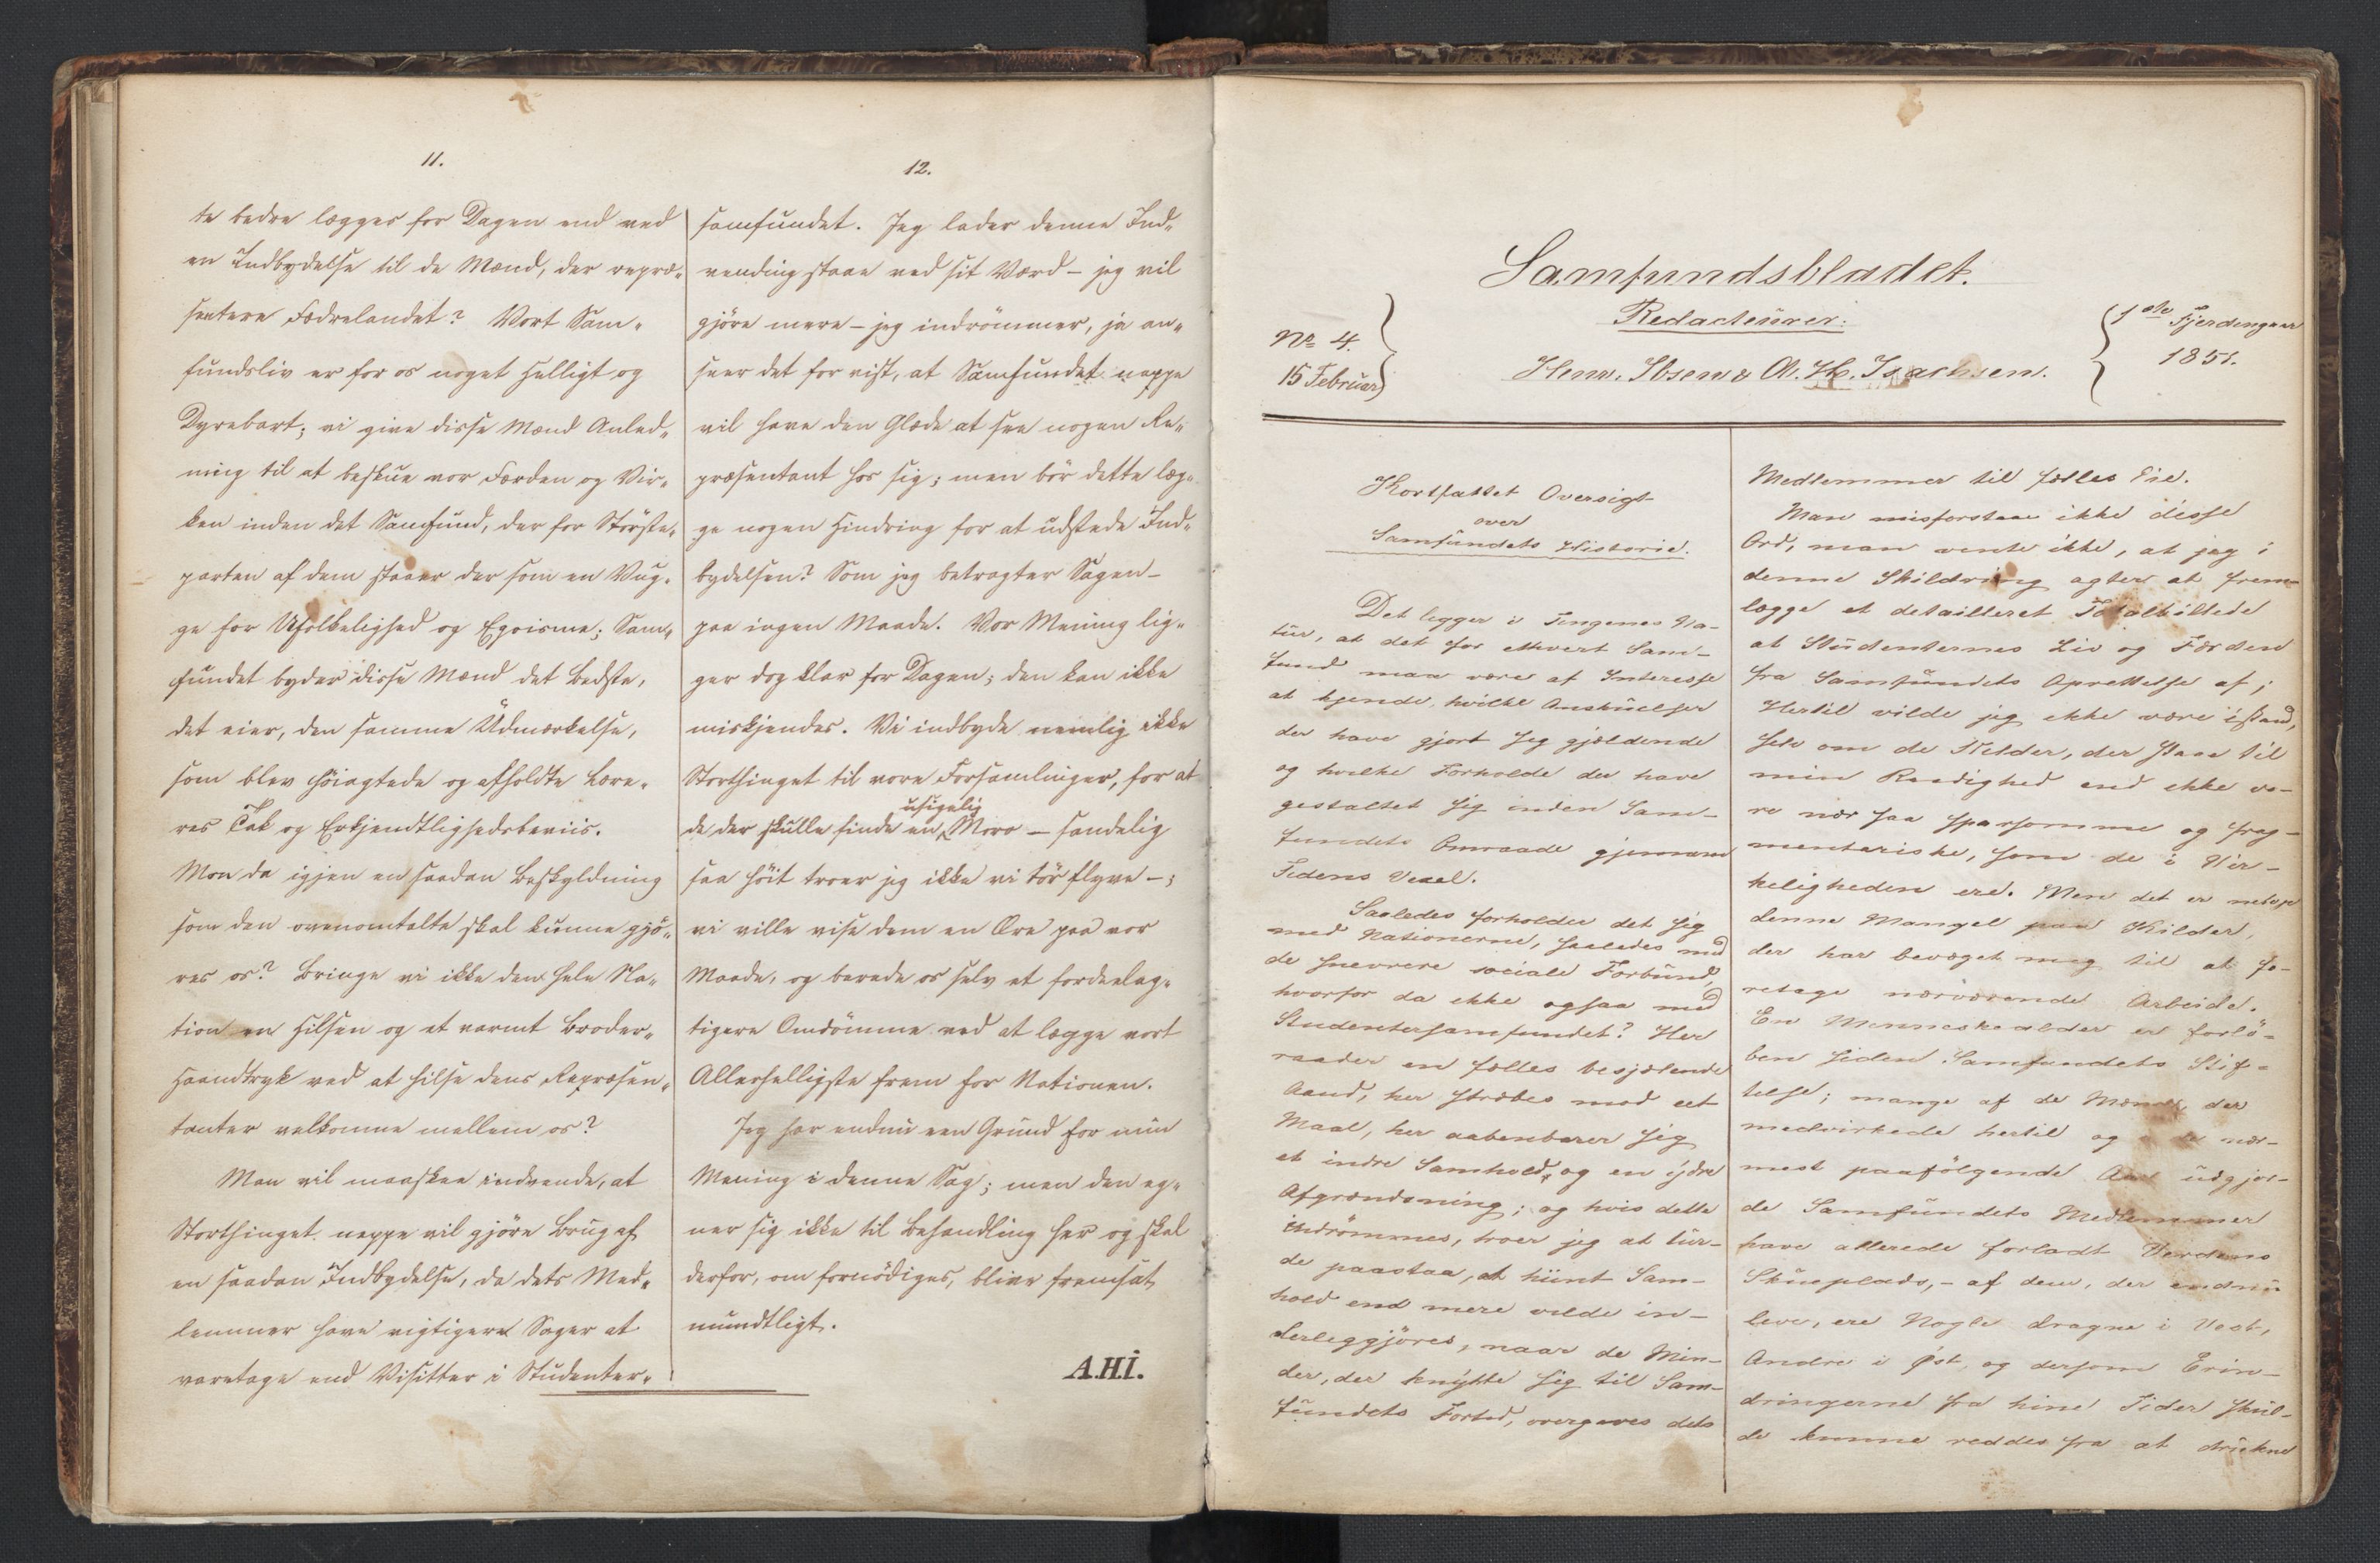 11.
te bedre lægges for Dagen end ved
en Indbydelse til de Mænd, der repræ-
sentere Fædrelandet? Vort Sam-
fundsliv er for os noget Helligt og
Dyrebart; vi give disse Mænd Anled-
ning til at beskue vor Færden og Vir-
ken inden det Samfund, der for Störste-
parten af dem staaer der som en Vug-
ge for Ufolkelighed og Egoisme; Sam-
fundet byder disse Mænd det Bedste,
det eier, den samme Udmærkelse,
som blev höiagtede og afholdte Lære-
res Tak og Erkjendtlighedsbeviis.
Mon da igjen en saadan Beskyldning
som den ovenomtalte skal kunne gjö-
res os? Bringe vi ikke den hele Na-
tion en Hilsen og et varmt Broder-
Haandtryk ved at hilse dens Repræsen-
tanter velkomne mellem os?
Man vil maaskee indvende, at
Storthinget neppe vil gjöre Brug af
en saadan Indbydelse, da dets Med-
lemmer have vigtigere Sager at
varetage end Visitter i Studenter-
12.
samfundet. Jeg lader denne Ind-
vending staae ved sit Værd – jeg vil
gjöre mere – jeg indrömmer, ja an-
seer det for vist, at Samfundet neppe
vil have den Glæde at see nogen Re-
præsentant hos sig; men bör dette læg-
ge nogen Hindring for at udstede Ind-
bydelsen? Som jeg betragter Sagen –
paa ingen Maade. Vor Mening lig-
ger dog klar for Dagen; den kan ikke
miskjendes. Vi indbyde nemlig ikke
Storthinget til vore Forsamlinger, for at
usigelig
de der skulle finde en Moro – sandelig
saa höit troer jeg ikke vi tör flyve –;
vi ville vise dem en Ære paa vor
Maade, og berede os selv et fordeelag-
tigere Omdömme ved at lægge vort
Allerhelligste frem for Nationen.
Jeg har endnu een Grund for min
Mening i denne Sag; men den eg-
ner sig ikke til Behandling her og skal
derfor, om fornödiges, blive fremsat
mundtligt.
A.H.I.
Samfundsbladet.
Redacteürer:
Henr. Ibsen & A. H. Isachsen.
No 4.
15 Februar
1ste Fjerdingaar
1851.
Kortfattet Oversigt
over
Samfündets Historie.
Det ligger i Tingenes Na-
tür, at det for ethvert Sam-
fund maa være af Interesse
at kjende, hvilke Anskuelser
der have gjort sig gjældende
og hvilke Forholde der have
gestaltet sig inden Sam-
fundets Omraade gjennem
Tidens Vexel.
Saaledes forholder det sig
med Nationerne, saaledes med
de snevrere sociale Forbund,
hvorfor da ikke ogsaa med
Studentersamfundet? Her
raader en fælles besjælende
Aand, her stræbes mod eet
Maal, her aabenbarer sig
et indre Samhold, og en ydre
Afgrændsning; og hvis dette
indrömmes, troer jeg at tur-
de paastaa, at hiint Sam-
hold end mere vilde in-
derliggjöres, naar de Min-
der, der knytte sig til Sam-
fundets Fortid, overgaves dets
Medlemmer til fælles Eie.
Man misforstaae ikke disse
Ord, man vente ikke, at jeg i
denne Skildring agter at frem-
lægge et detailleret Totalbillede
at Studenternes Liv og Færden
fra Samfundets Oprettelse af;
Hertil vilde jeg ikke være istand,
selv om de Kilder, der staae til
min Raadighed end ikke va-
re nær saa sparsomme og frag-
mentariske, som de i Vir-
keligheden ere. Men det er netop
denne Mangel paa Kilder,
der har bevæget mig til at fo-
retage nærværende Arbeide.
En Menneskealder er forlö-
ben siden Samfundets Stif-
telse; mange af de Mænd, der
medvirkede hertil og i de nær-
mest paafölgende Aar udgjor-
de Samfundets Medlemmer
have allerede forladt Verdens
Skueplads, – af dem, der endnu
leve, ere Nogle dragne i Vest,
Andre i Øst, og dersom Erin-
dringerne fra hine Tider skul-
de kunne reddes fra at drukne